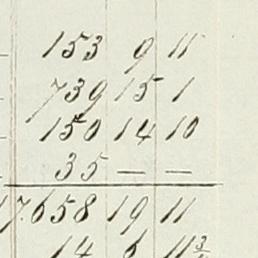 153 9 11
739 15 1
150 14 10
35 — —
17658 19 11
14 6 11¾